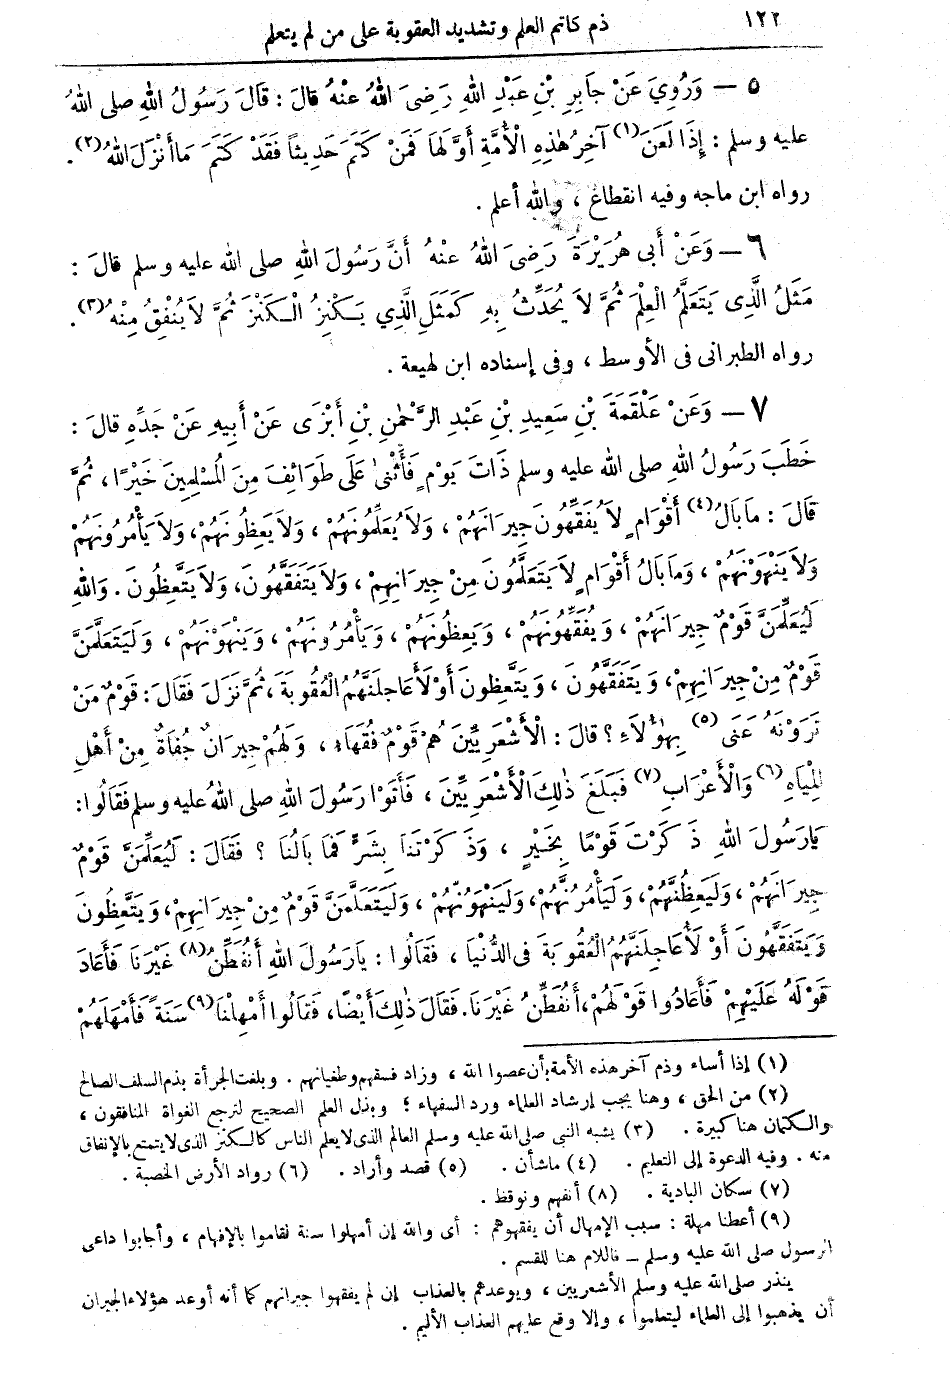 ١٢٢ ذم كاتم العلم وتشديد العقوبة على من لم يتعلم
٥ — وَرُوِيَ عَنْ جَابِرِ بْنِ عَبْدِ اللهِ رَضِىَ اللهُ عَنْهُ قَالَ : قَالَ رَسُولُ اللهِ صلى اللهُ
عليه وسلم : إِذَا لَعَنَ (١) آخِرُ هٰذِهِ الْأُمَّةِ أَوَّلَهَا فَمَنْ كَتَمَ حَدِيثاً فَقَدْ كَتَمَ مَا أَنْزَلَ اللهُ (٢) .
رواه ابن ماجه وفيه انقطاع ، والله أعلم .
٦ — وَعَنْ أَبِى هُرَيْرَةَ رَضِىَ اللهُ عنهُ أَنَّ رَسُولَ اللهِ صلى الله عليه وسلم قالَ :
مَثَلُ الَّذِى يَتَعَلَّمُ الْعِلْمَ ثُمَّ لاَ يُحَدِّثُ بِهِ كَمَثَلِ الَّذِي يَكْنِزُ الْكَنْزَ ثُمَّ لاَ يُنْفِقُ مِنْهُ (٣) .
رواه الطبرانى فى الأوسط ، وفى إسناده ابن لهيعة .
٧ — وَعَنْ عَلْقَمَةَ بْنِ سَعِيدِ بْنِ عَبْدِ الرَّحْمٰنِ بْنِ أَبْزَى عَنْ أَبِيهِ عَنْ جَدِّهِ قالَ :
خَطَبَ رَسُولُ اللهِ صلى الله عليه وسلم ذَاتَ يَوْمٍ فَأَثْنَىٰ عَلَى طَوَائِفَ مِنَ الْمُسْلِمِينَ خَيْرًا ، ثُمَّ
قَالَ : مَا بَالُ (٤) أَقْوَامٍ لاَ يُفَقِّهُونَ جِيرَانَهُمْ ، وَلاَ يُعَلِّمُونَهُمْ ، وَلاَ يَعِظُونَهُمْ ، وَلاَ يَأْمُرُونَهُمْ
وَلاَ يَنْهَوْنَهُمْ ، وَمَا بَالُ أَقْوَامٍ لاَ يَتَعَلَّمُونَ مِنْ جِيرَانِهِمْ ، وَلاَ يَتَفَقَّهُونَ ، وَلاَ يَتَّعِظُونَ . وَاللهِ
لَيُعَلِّمَنَّ قَوْمٌ جِيرَانَهُمْ ، وَيُفَقِّهُونَهُمْ ، وَيَعِظُونَهُمْ ، وَيَأْمُرُونَهُمْ ، وَيَنْهَوْنَهُمْ ، وَلَيَتَعَلَّمَنَّ
قَوْمٌ مِنْ جِيرَانِهِمْ ، وَيَتَفَقَّهُونَ ، وَيَتَّعِظُونَ أَوْ لَأُعَاجِلَنَّهُمُ الْعُقُوبَةَ ، ثُمَّ نَزَلَ فَقَالَ : قَوْمٌ مَنْ
تَرَوْنَهُ عَنَى (٥) بِهٰؤُلاَءِ ؟ قالَ : الْأَشْعَرِيِّينَ هُمْ قَوْمٌ فُقَهَاءُ ، وَلَهُمْ جِيرَانٌ جُفَاةٌ مِنْ أَهْلِ
الْمِيَاهِ (٦) وَالْأَعْرَابِ (٧) فَبَلَغَ ذٰلِكَ الْأَشْعَرِيِّينَ ، فَأَتَوْا رَسُولَ اللهِ صلى اللهُ عليه وسلم فَقَالُوا :
يَارَسُولَ اللهِ ذَكَرْتَ قَوْمًا بِخَيْرٍ ، وَذَكَرْتَنَا بِشَرٍّ فَمَا بَالُنَا ؟ فَقَالَ : لَيُعَلِّمَنَّ قَوْمٌ
جِيرَانَهُمْ ، وَلَيَعِظُنَّهُمْ ، وَلَيَأْمُرُنَّهُمْ ، وَلَيَنْهَوُنَّهُمْ ، وَلَيَتَعَلَّمَنَّ قَوْمٌ مِنْ جِيرَانِهِمْ ، وَيَتَّعِظُونَ
وَيَتَفَقَّهُونَ أَوْ لَأُعَاجِلَنَّهُمُ الْعُقُوبَةَ فى الدُّنْيَا ، فَقَالُوا : يَارَسُولَ اللهِ أَنُفَطِّنُ (٨) غَيْرَنَا فَأَعَادَ
قَوْلَهُ عَلَيْهِمْ فَأَعَادُوا قَوْلَهُمْ ، أَنُفَطِّنُ غَيْرَنَا . فَقَالَ ذٰلِكَ أَيْضًا ، فَقَالُوا أَمْهِلْنَا (٩) سَنَةً فَأَمْهَلَهُمْ
(١) إذا أساء وذم آخر هذه الأمة بأن عصوا الله ، وزاد فسقهم وطغيانهم . وبلغت الجرأة بذم السلف الصالح
(٢) من الحق ، وهنا يجب إرشاد العلماء ورد السفهاء ؛ وبذل العلم الصحيح لترجع الغواة المنافقون ،
والكتمان هنا كبيرة . (٣) يشبه النبى صلى الله عليه وسلم العالم الذى لا يعلم الناس كالكنز الذى لا يتمتع بالإنفاق
منه . وفيه الدعوة إلى التعليم . (٤) ماشأن . (٥) قصد وأراد . (٦) رواد الأرض الخصبة .
(٧) سكان البادية . (٨) أنفهم ونوقظ .
(٩) أعطنا مهلة : سبب الإمهال أن يفقهوهم : أى والله إن أمهلوا سنة لقاموا بالإفهام ، وأجابوا داعى
الرسول صلى الله عليه وسلم — فاللام هنا للقسم .
ينذر صلى الله عليه وسلم الأشعريين ، ويوعدهم بالعذاب إن لم يفقهوا جيرانهم كما أنه أوعد هؤلاء الجيران
أن يذهبوا إلى العلماء ليتعلموا ، وإلا وقع عليهم العذاب الأليم .